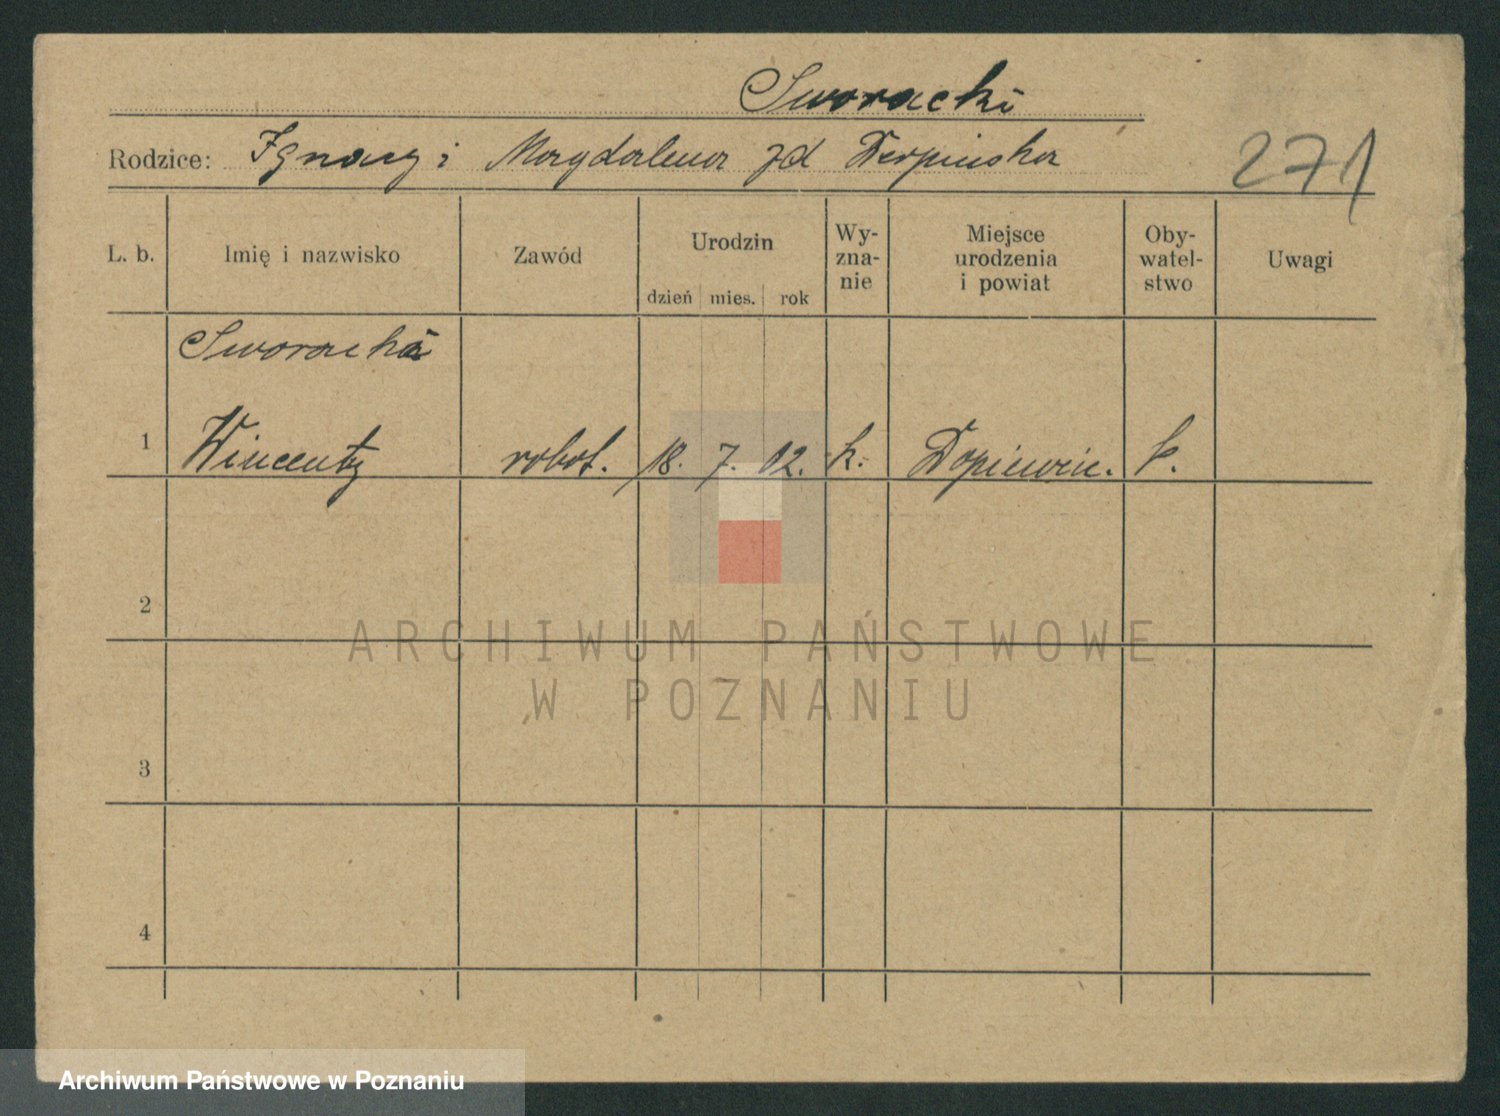 Sworacki
Rodzice: Ignacy i Magdalena zd Derpinska
271
L. b. Imię i nazwisko Zawód Urodzin Wy-zna-nie Miejsce urodzenia i powiat Oby-watel-stwo Uwagi
dzień mies. rok
Sworacki
1 Wincenty robot. 18. 7. 02. k. Dopiewiec. p.
2
ARCHIWUM PAŃSTWOWE
W POZNANIU
3
4
Archiwum Państwowe w Poznaniu